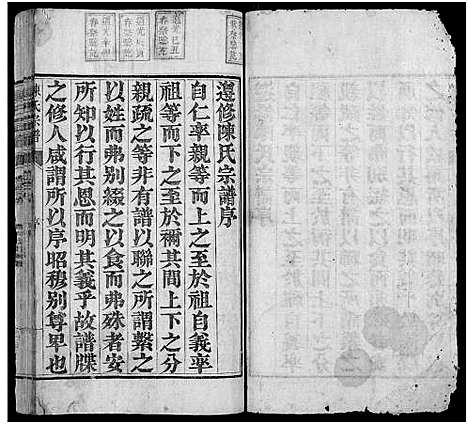 遵修陳氏宗譜序
自仁率親等而上之至於祖自義率
祖等而下之至於禰其間上下之分
親疏之等非有譜以聯之所謂繫之
以姓而弗別綴之以食而弗殊者安
所知以行其恩而明其義乎故譜牒
之修人咸謂所以序昭穆別尊卑也
陳氏宗譜
序